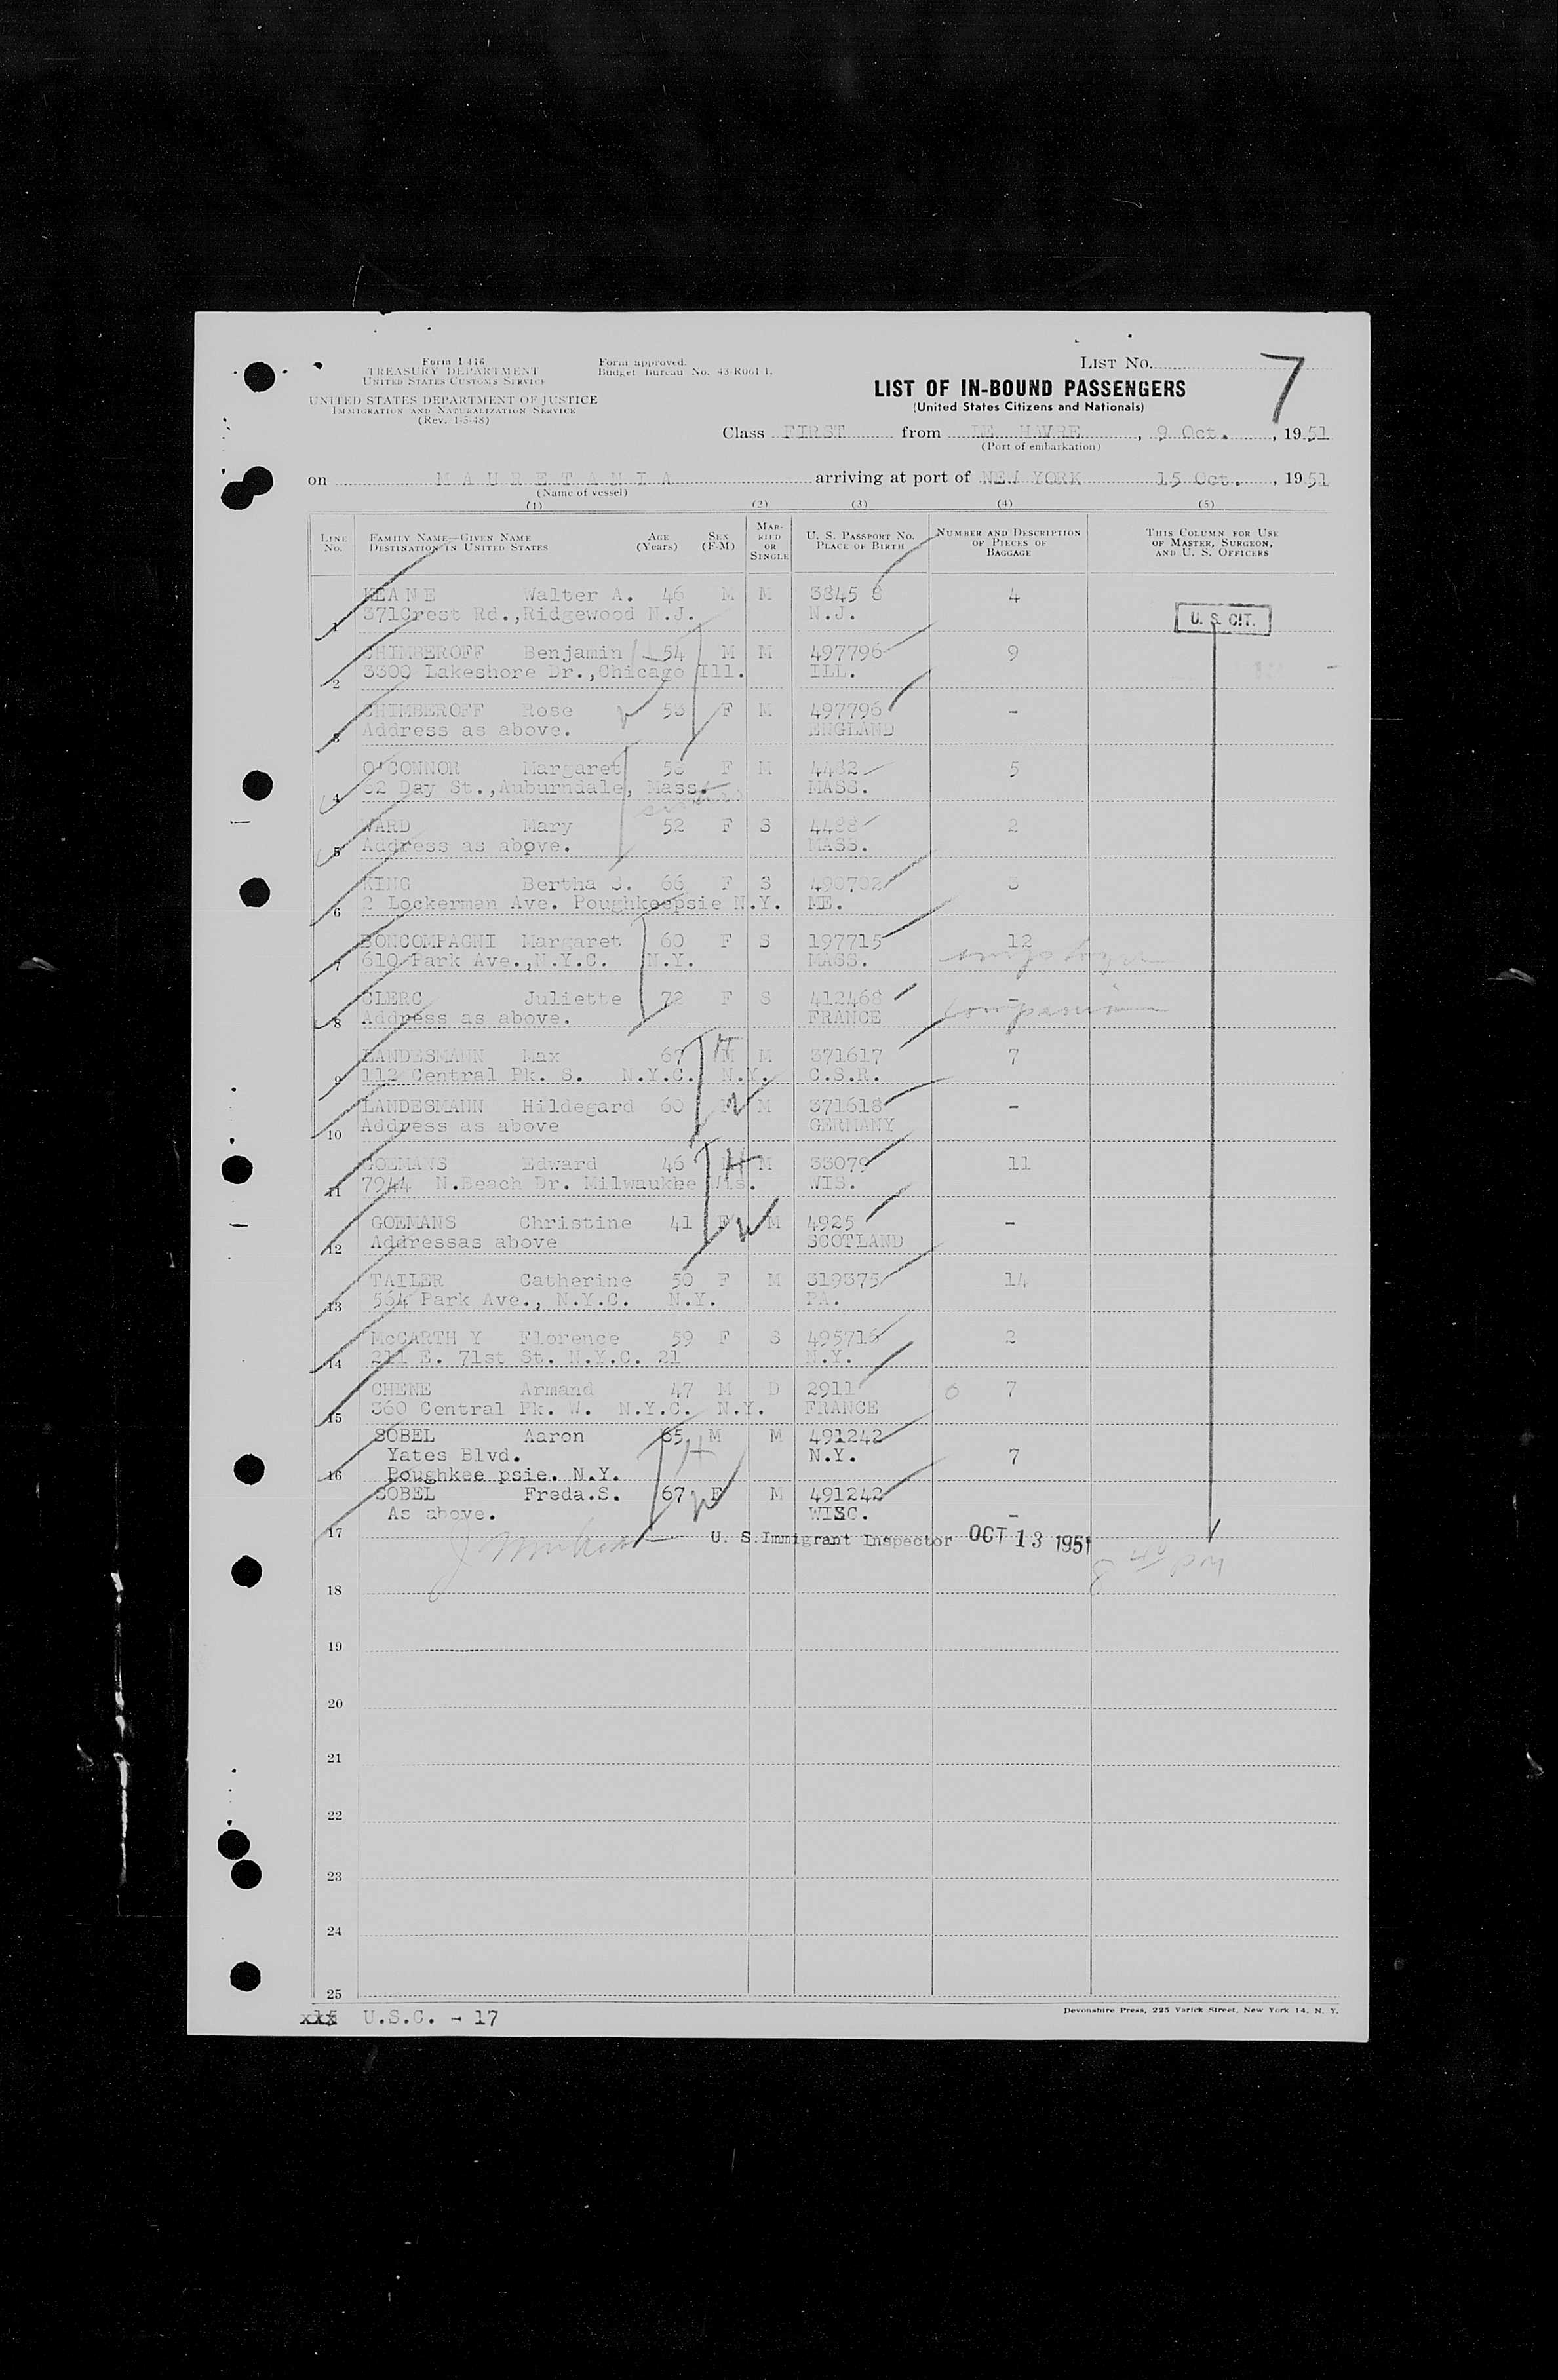 Form I 416
TREASURY DEPARTMENT
UNITED STATES CUSTOMS SERVICE
UNITED STATES DEPARTMENT OF JUSTICE
IMMIGRATION AND NATURALIZATION SERVICE
(Rev. 1-5-48)
Form approved.
Budget Bureau No. 43-R061-1.
LIST No. 7
LIST OF IN-BOUND PASSENGERS
(United States Citizens and Nationals)
Class FIRST from LE HAVRE, 9 Oct., 1951
(Port of embarkation)
on MAURETANIA arriving at port of NEW YORK 15 Oct., 1951
(Name of vessel)
(1) (2) (3) (4) (5)
LINE No. FAMILY NAME—GIVEN NAME DESTINATION IN UNITED STATES AGE (Years) SEX (F-M) MARRIED OR SINGLE U. S. PASSPORT NO. PLACE OF BIRTH NUMBER AND DESCRIPTION OF PIECES OF BAGGAGE THIS COLUMN FOR USE OF MASTER, SURGEON, AND U. S. OFFICERS
KEANE Walter A. 46 M M 3845 8 4
1 371Crest Rd.,Ridgewood N.J. N.J. U. S. CIT.
SHIMBEROFF Benjamin H 54 M M 497796 9
2 3300 Lakeshore Dr.,Chicago Ill. ILL.
SHIMBEROFF Rose W 53 F M 497796 -
3 Address as above. ENGLAND
O'CONNOR Margaret 58 F M 4482 5
4 62 Day St.,Auburndale, Mass. MASS.
WARD Mary 52 F S 4488 2
5 Address as above. MASS.
KING Bertha S. 66 F S 490702 3
6 2 Lockerman Ave. Poughkeepsie N.Y. ME.
BONCOMPAGNI Margaret 60 F S 197715 12
7 610 Park Ave.,N.Y.C. N.Y. MASS.
CLERC Juliette 72 F S 412468 -
8 Address as above. FRANCE companion
LANDESMANN Max 67 M H M 371617 7
9 112 Central Pk. S. N.Y.C. N.Y. C.S.R.
LANDESMANN Hildegard 60 F W M 371618 -
10 Address as above GERMANY
GOEMANS Edward 46 M H M 33079 11
11 7944 N.Beach Dr. Milwaukee Wis. WIS.
GOEMANS Christine 41 F W M 4925 -
12 Addressas above SCOTLAND
TAILER Catherine 50 F M 319375 14
13 564 Park Ave., N.Y.C. N.Y. PA.
McCARTH Y Florence 59 F S 495716 2
14 211 E. 71st St. N.Y.C. 21 N.Y.
CHENE Armand 47 M D 2911 0 7
15 360 Central Pk. W. N.Y.C. N.Y. FRANCE
SOBEL Aaron 65 M H M 491242
Yates Blvd. N.Y. 7
16 Poughkee psie. N.Y.
SOBEL Freda.S. 67 F W M 491242
As above. WISC. -
17 U. S. Immigrant Inspector OCT 13 1951
18
19
20
21
22
23
24
25
xxx U.S.C. - 17
Devonshire Press, 225 Varick Street, New York 14, N. Y.